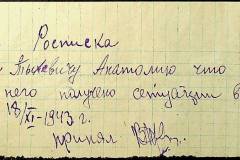 Росписка
Тыкевичу Анатолию что
него получено сетуации в
18/XI-1943 г.
принял